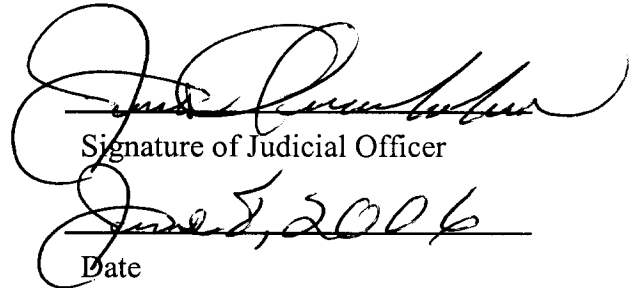 Signature of Judicial Officer
June 8, 2006
Date